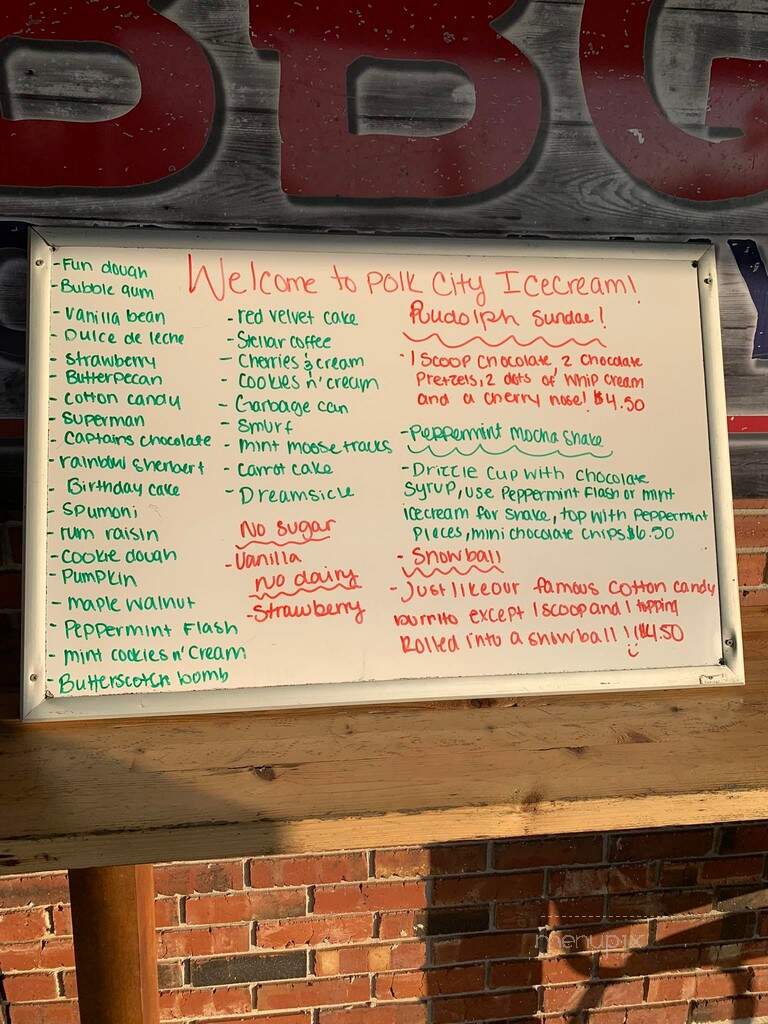 BBQ
Welcome to Polk City Icecream!
- Fun dough
- Bubble gum
- vanilla bean
- Dulce de leche
- strawberry
- Butterpecan
- cotton candy
- superman
- Captains chocolate
- rainbow sherbert
- Birthday cake
- spumoni
- rum raisin
- cookie dough
- Pumpkin
- maple walnut
- Peppermint Flash
- mint cookies n' cream
- Butterscotch bomb
- red velvet cake
- Stellar coffee
- Cherries & cream
- Cookies n' cream
- Garbage can
- Smurf
- mint moosetracks
- Carrot cake
- Dreamsicle
No sugar
- Vanilla
No dairy
- Strawberry
Rudolph Sundae!
- 1 scoop chocolate 2 chocolate
Pretzels, 2 dots of whip cream
and a cherry nose! $4.50
- Peppermint Mocha shake
- Drizzle cup with chocolate
syrup, use peppermint flash or mint
icecream for shake, top with peppermint
pieces, mini chocolate chips $6.50
- Snowball
- Just like our famous cotton candy
burrito except 1 scoop and 1 topping
Rolled into a snowball! $4.50
menupix